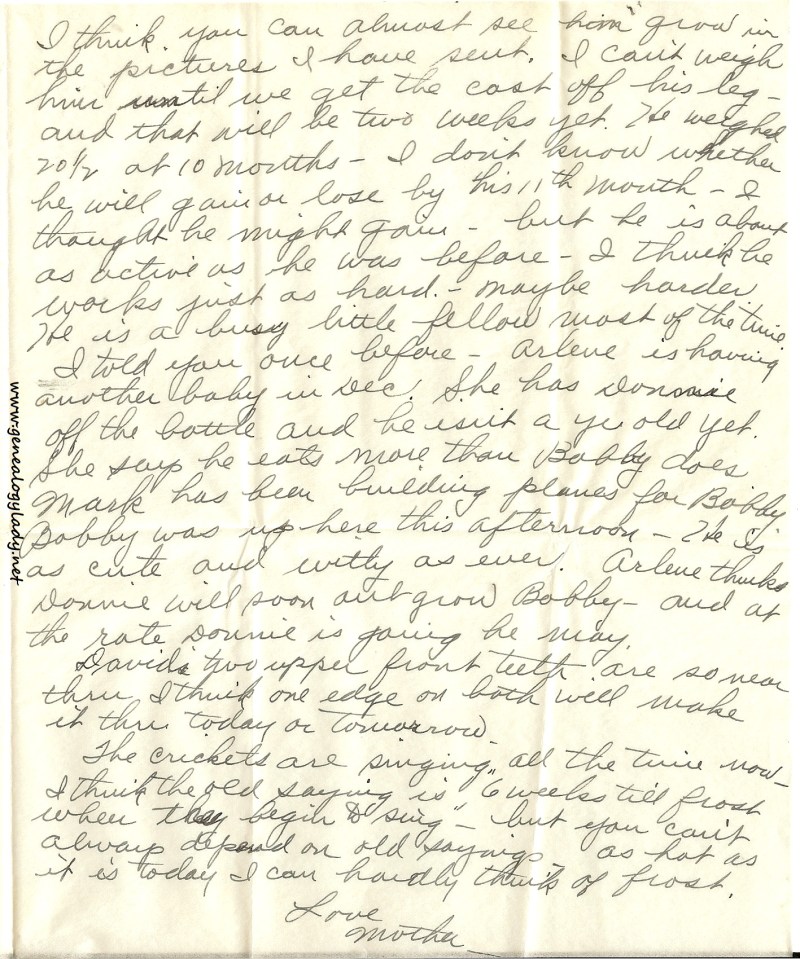 I think you can almost see him grow in
the pictures I have sent. I can't weigh
him until we get the cast off his leg -
and that will be two weeks yet. He weighed
20½ at 10 months - I don't know whether
he will gain or lose by his 11th month - I
thought he might gain - but he is about
as active as he was before - I think he
works just as hard. - maybe harder
He is a busy little fellow most of the time.
I told you once before - Arlene is having
another baby in Dec. She has Donnie
off the bottle and he isn't a yr old yet.
She say he eats more than Bobby does
Mark has been building planes for Bobby
Bobby was up here this afternoon - He is
as cute and witty as ever. Arlene thinks
Donnie will soon out grow Bobby - and at
the rate Donnie is going he may.
David's two upper front teeth are so near
thru, I think one edge on both will make
it thru today or tomorrow.
The crickets are singing, all the time now -
I think the old saying is "6 weeks till frost
when they begin to sing" - but you can't
always depend on old sayings - as hot as
it is today I can hardly think of frost.
Love
Mother
www.genealogylady.net